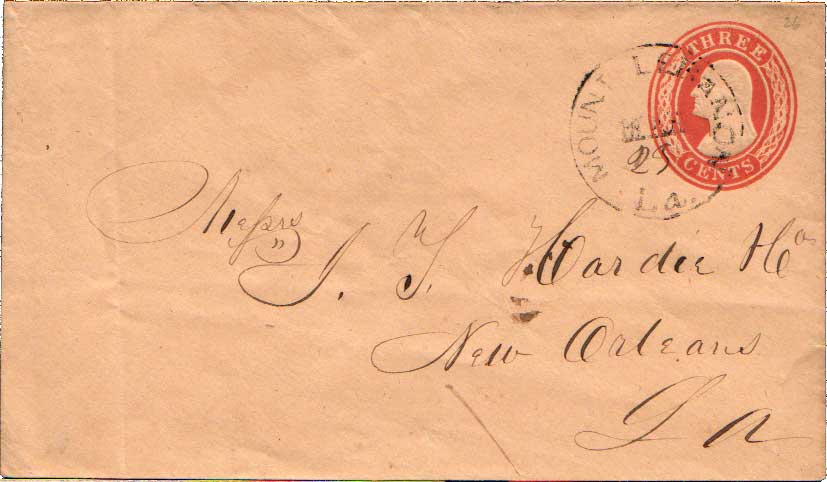 26
THREE
CENTS
MOUNT LEBANON
MAR
25
La.
Messrs
J. T. Hardie &Co
New Orleans
La